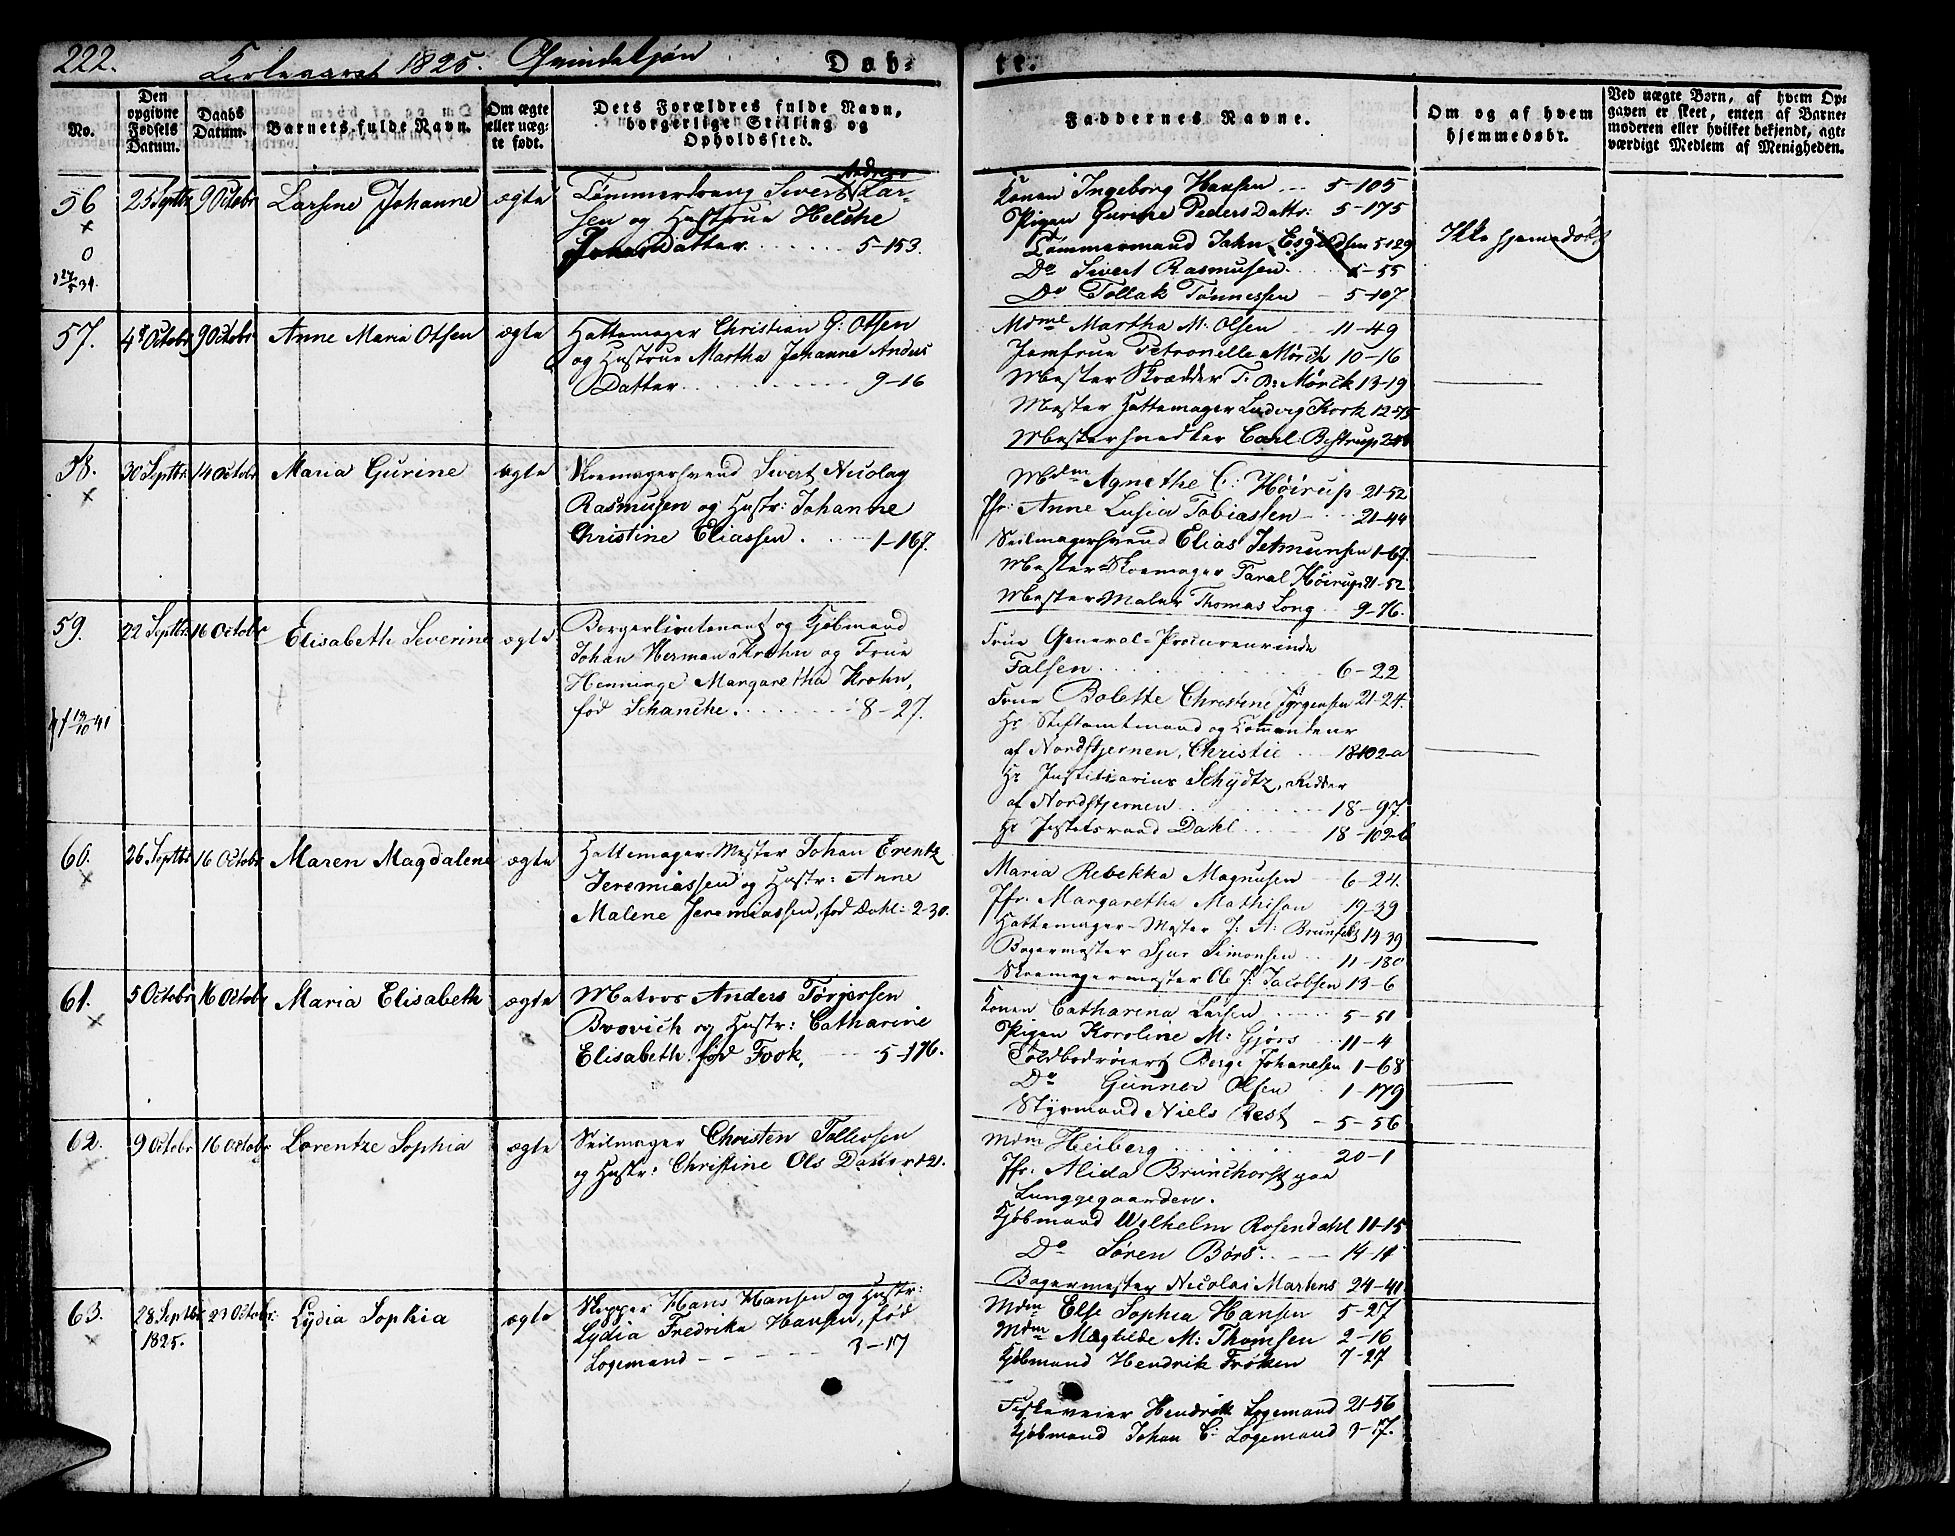 222. Kirkeaaret 1825. Qvindekjøn Døb-
te.
No.
Den opgivne Fødsels Datum.
Daabs Datum.
Barnets fulde Navn.
Om ægte eller uægte født.
Dets Forældres fulde Navn, borgerlige Stilling og Opholdssted.
Faddernes Navne.
Om og af hvem hjemmedøbt.
Ved uægte Børn, af hvem Opgaven er skeet, enten af Barnemoderen eller hvilket bekjendt, agtværdigt Medlem af Menigheden.
56 25 Septbr 9 Octobr Larsine Johanne ægte
Andreas
Tømmerdreng Sivert Lar-
sen og Hustrue Helche
Johans Datter 5-153.
Konen Ingeborg Hansen 5-105
Pigen Gurine Peders Datter: 5-175
Tømmermand Jahn Esgildsen 5-129
Do Sivert Rasmusen 5-55
Do Tollak Tønnessen 5-107
Ikke hjemmedøbt
57. 4de Octobr 9 Octobr Anne Maria Olsen ægte
Hattemager Christian G: Olsen
og Hustrue Martha Johanne Anders
Datter 9-16
Mdme Martha M. Olsen 11-49
Jomfrue Petronelle Mørch 10-16
Mester Skrædder T. B: Mørch 13-19
Mester Hattemager Ludvig Kork 12-75
Mestersvedker Carl: Bistrup
58. 30 Septbr 14 Octobr Maria Gurine ægte
Skomagersvend Sivert Nicolay
Rasmusen og Hustr: Johanne
Christine Eliassen 1-167.
Mdm Agnethe C: Høirup 21-52
Jfr: Anne Lusia Tobiassen 21-44
Seilmagersvend Elias Jetmunsen 1-67.
Mester Skomager Taral Høirup 21-52
Mester Maler Thomas Long 9-76.
59. 22 Septbr 16 Octobr Elisabeth Severine ægte
Borgerlieutenant og Kjøbmand
Johan Herman Krohn og Frue
Henninge Margaretha Krohn,
fød Schanche. 8-27.
Frue General-Procureurinde
Falsen 6-22
Frue Bolette Christine Jørgensen 21-24.
Hr Stiftamtmand og Commandeur
af Nordstjernen, Christie 18-102-a
Hr Justitiarius Schydtz, Ridder
af Nordstjernen 18-97.
Hr Justitsraad Dahl 18-102-b
60. 26 Septbr 16 Octobr Maren Magdalene ægte
Hattemager-Mester Johan Erentz
Jeremiassen og Hustr: Anne
Malene Jeremiassen, fød Dahl: 2-30.
Maria Rebekka Magnusen 6-24.
Jfr. Margaretha Mathisen 19-39
Hattemager-Mester J: A: Brunfels 14-39
Bagermester Sjur Simonsen 11-180
Skomagermester Ole J: Jacobsen 13-6
61. 5 Octobr 16 Octobr Maria Elisabeth ægte
Matros Anders Torgersen
Brovich og Hustr: Catharine
Elisabeth fød Fook. 5-176.
Konen Catharina Larsen 5-51
Pigen Karoline M: Gjørs 11-4
Toldbodroiert Berge Johanesen 1-68
Do Gunner Olsen 1-179
Styrmand Niels Rest 5-56
62. 9 Octobr 16 Octobr Lorentze Sophia ægte
Seilmager Christen Tollevsen
og Hustr: Christine Ols Datter
Mdm Heiberg 20-1
Jfr: Alida Brunchorst paa
Lunggegaarden.
Kjøbmand Wilhelm Rosendahl 11-15
Do Søren Børs 14-11
Bagermester Nicolai Martens 24-41
63. 28 Septbr 1825. 23 Octobr. Lydia Sophia ægte
Skipper Hans Hansen og Hustr:
Lydia Fredrika Hansen, fød
Logemand 3-17
Mdm Else Sophia Hansen 5-27
Mdm Magtilde M: Thomsen 2-16
Kjøbmand Hendrik Frøken 7-27
Fiskeveier Hendrik Logemand 21-56
Kjøbmand Johan C: Logemand 3-17.